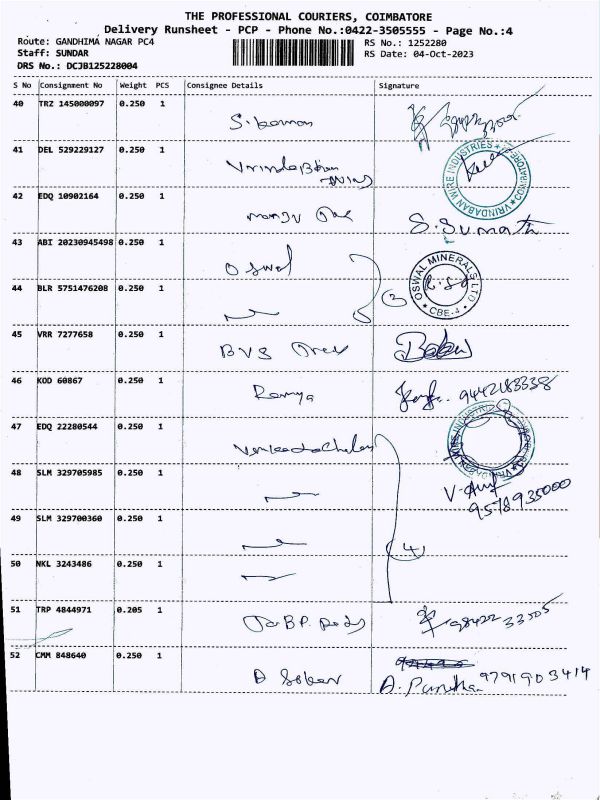 THE PROFESSIONAL COURIERS, COIMBATORE
Delivery Runsheet - PCP - Phone No.:0422-3505555 - Page No.:4
Route: GANDHIMA NAGAR PC4
RS No.: 1252280
Staff: SUNDAR
RS Date: 04-Oct-2023
DRS No.: DCJB125228004
S No Consignment No Weight PCS Consignee Details Signature
40 TRZ 145000097 0.250 1
41 DEL 529229127 0.250 1
VRINDABAN WIRE INDUSTRIES * COIMBATORE *
42 EDQ 10902164 0.250 1 S. Sumathi
43 ABI 20230945498 0.250 1 Oswal
OSWAL MINERALS LTD * CBE-4 *
44 BLR 5751476208 0.250 1 3
45 VRR 7277658 0.250 1 BVS
46 KOD 60867 0.250 1 Ramya 9442183338
47 EDQ 22280544 0.250 1 Venkatachalam
48 SLM 329705985 0.250 1
9578935000
49 SLM 329700360 0.250 1
4
50 NKL 3243486 0.250 1
51 TRP 4844971 0.205 1 98422 33505
52 CMM 848640 0.250 1 9791903414